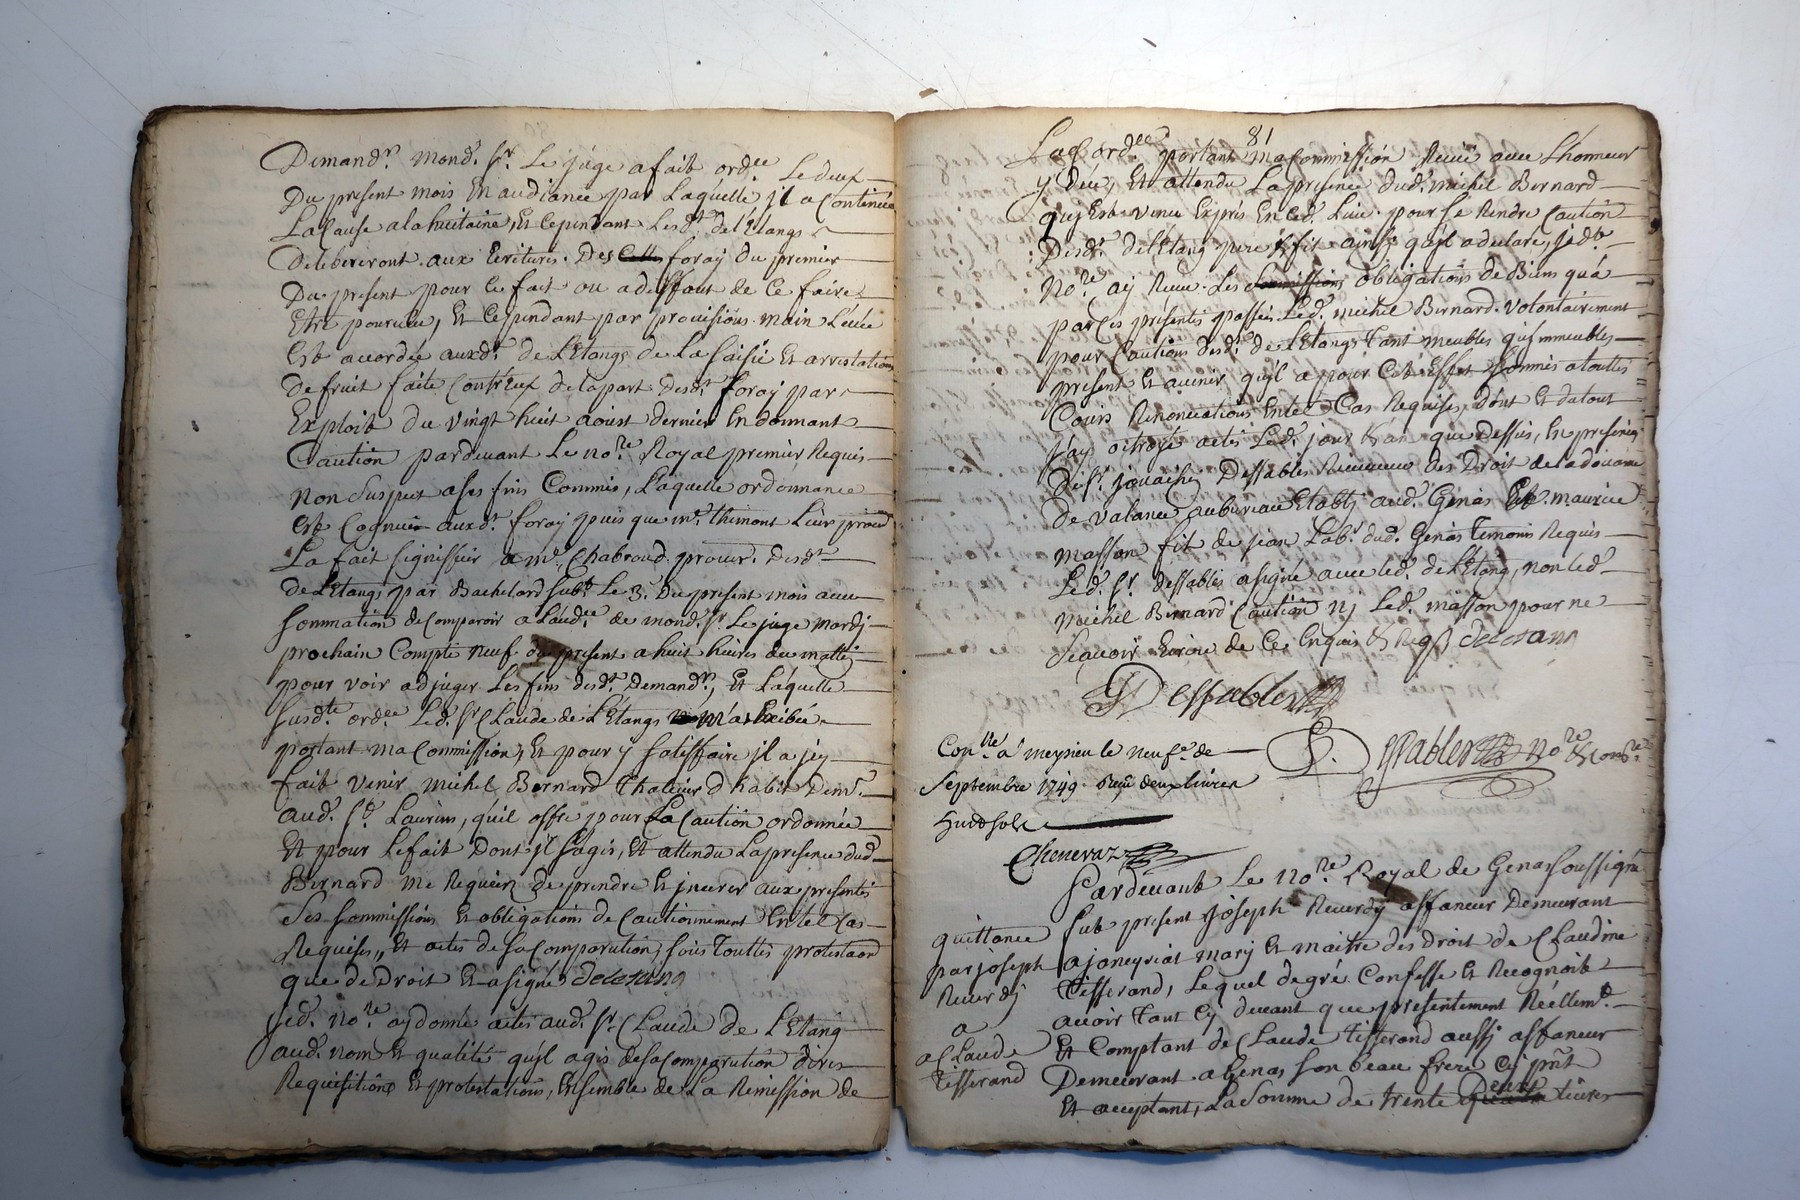 Demand.rs mond.t Sr. Le juge a fait ord.ce Le deux
Du present mois En audiance par Laquelle jl a Continué
La Cause a la huitaine, Et Cependant Lesd.ts de L'Etangs
Delibereront aux Ecritures Des foray du premier
Du present pour Ce fait ou a deffaut de Ce faire
Etre pourvüe, Et Cependant par provisions main Levée
Est accordée auxd.ts de L'Etangs de La Saisie Et arrestation
De fruit faite Contr'eux de la part Desd.ts foray par
Exploit du vingt huit aoust dernier En donnant
Caution pardevant Le no.re Royal premier Requis
Non Suspect a ses fins Commis, Laquelle ordonnance
Est auxd.ts foray puis que m.e thimont Leur procu
La fait signiffier a m.e Chabroud procur. Desd.ts
De L'Etangs par Bachelard Le 3.e Du present mois avec
Sommation de Comparoir a L'aud.ce de mond. Sr Le juge mardy
prochain Compté neuf du present a huit heures du mattin
pour voir adjuger Les fins desd.ts Demand.rs, Et Laquelle
Susd.te ord.ce Led. Sr Claude de L'Etangs m'a Exibée
portant ma Commission, Et pour y Satisffaire jl a jcy
fait venir michel Bernard D habit Dem.t
aud. St. Laurins, qu'il offre pour La Caution ordonnée
Et pour Le fait Dont jl s'agis, Et attendu La presence dud.
Bernard me Requiert de prendre Et jnserer aux presentes
Ses Sommissions Et obligations de Cautionnement En tel Cas
Requises, Et actes de Sa Comparution, Sous Touttes protestaon
que de Droit Et a signé deletang
jed. no.re ay donné actes aud. Sr. Claude de L'Etang
aud. nom Et qualité qu'jl agis de sa Comparution dires
Requisitions Et protestations, Ensemble de La Remission de
81
Lad. ord.ce portant ma Commission Reçüe avec L'honneur
y Deu, Et attendu La presence dud. michel Bernard
quj Est venu Exprés En Ced. Lieu pour se Rendre Caution
Desd.ts de L'Etang pere & fils ainsy qu'jl a declaré, jed.t
No.re ay Reçeu Les Sommissions obligations de Biens qu'a
par Ces presentes passées Led. michel Bernard volontairement
pour Caution desd.ts de L'Etangs Tant meubles qu'jmmeubles
present Et avenir qu'jl a pour Cet Effet Sommis a touttes
Cours Renonciations En tel Cas Requises, dont Et du tout
j'ay octroyé actes Led. jour & an que Dessus, En presence
De Sr. Dessables Receveur des Droit de La doüanne
De Valance au bureau Etably aud. Genas Et maurice
Masson fils de jean Lab.r dud. Genas Temoins Requis
Led. Sr. Dessables a signé avec led. de L'Etang, non led.
Michel Bernard Caution ny Led. masson pour ne
Sçavoir Ecrire de Ce Enquis & Requis deletang
Dessables
Con.llé a meyzieu le neuf.e de
Septembre 1749. Reçu deux livres
huit sols
Chenevaz
no.re & Com.re
Pardevant Le no.re Royal de Genas Soussigné
fut present Joseph Reverdy affaneur Demeurant
a joneyrias mary Et maitre des Droit de Claudine
Tisserand, Lequel de gré Confesse Et Recognoit
avoir Tant Cy devant que presentement Réellem.t
Et Comptant de Claude Tisserand aussy affaneur
Demeurant a Genas Son beau frere Cy pñt
Et acceptant, La Somme de trente Deux Livres
quittance
par joseph
Reverdy
a
Claude
Tisserand